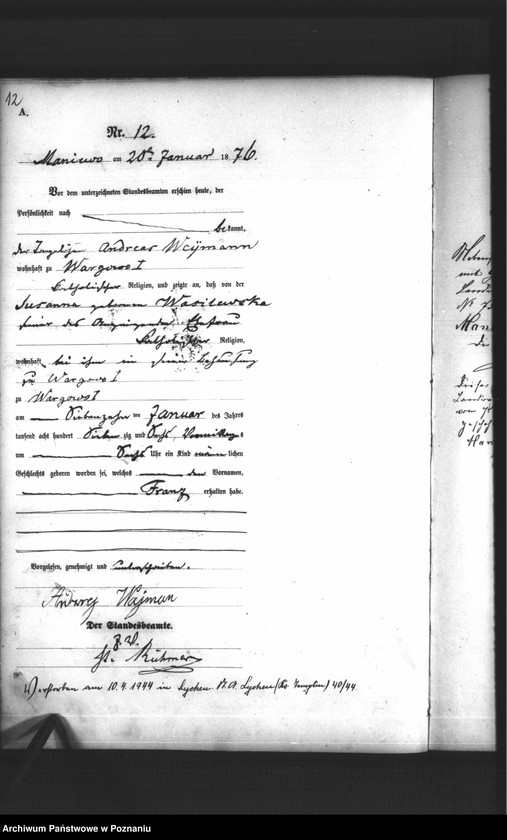 12
A.
Nr. 12.
Maniewo am 20ten Januar 1876.
Vor dem unterzeichneten Standesbeamten erschien heute, der
Persönlichkeit nach
bekannt,
der Andreas Weÿmann
wohnhaft zu Wargowo I
katholischer Religion, und zeigte an, daß von der
Susanna geborenen Wasilewska
seiner des Anzeigenden Ehefrau
katholischer Religion,
wohnhaft bei ihm in seiner
zu Wargowo I
zu Wargowo I
am Siebenzehn ten Januar des Jahres
tausend acht hundert Sieben zig und Sechs, Vormittags
um Sechs Uhr ein Kind männlichen
Geschlechts geboren worden sei, welches den Vornamen,
Franz erhalten habe.
Vorgelesen, genehmigt und unterschrieben.
Andrzej Wajman
Der Standesbeamte.
z. V.
Kührner
1) verstorben am 10.4.1944 in Lychen. St. A. Lychen (Kr. Templin) 40/44.
Archiwum Państwowe w Poznaniu